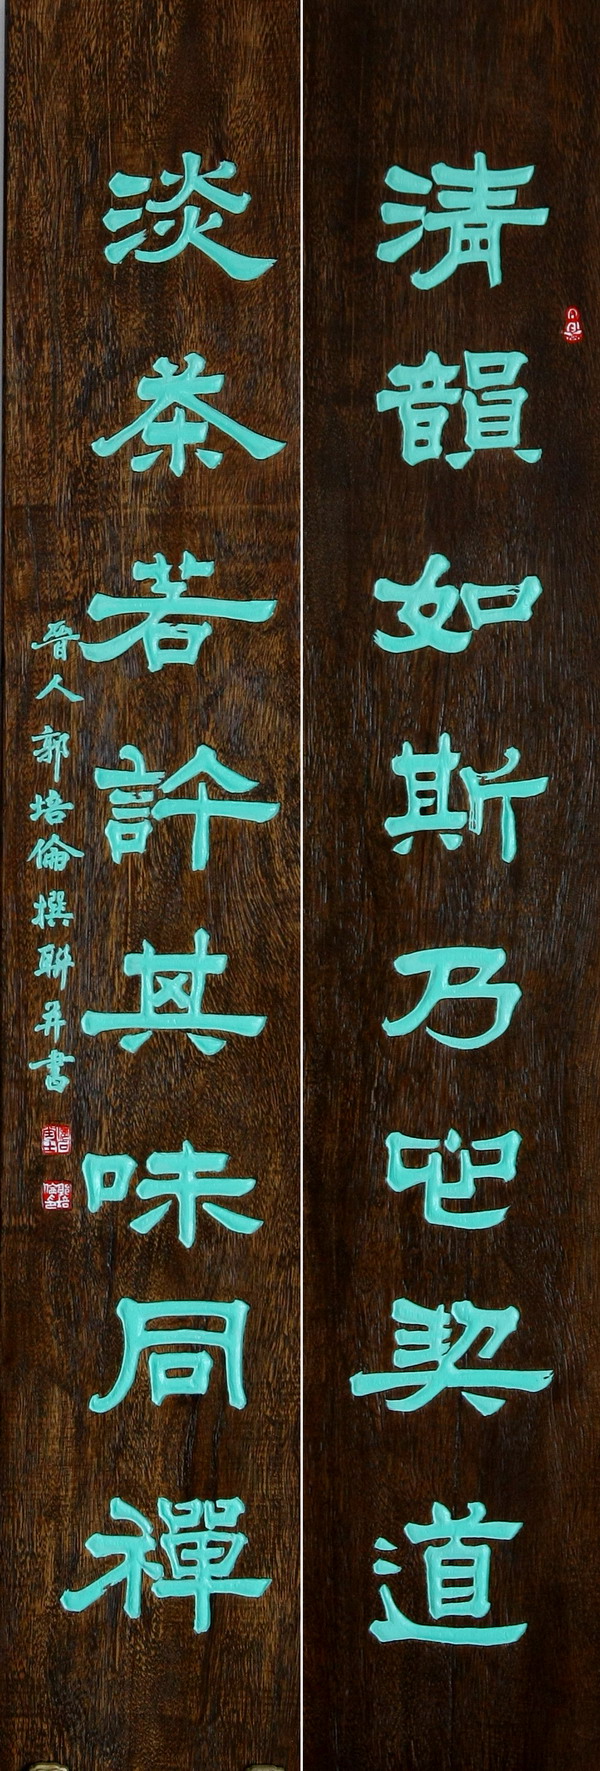 清韻如斯乃心契道
淡茶若許其味同禪
晉人郭培倫撰聯并書